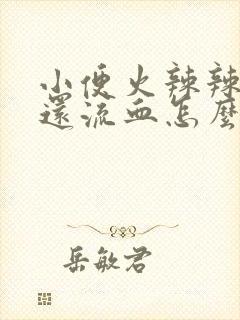 小便火辣辣
還流血怎麼
岳敏君